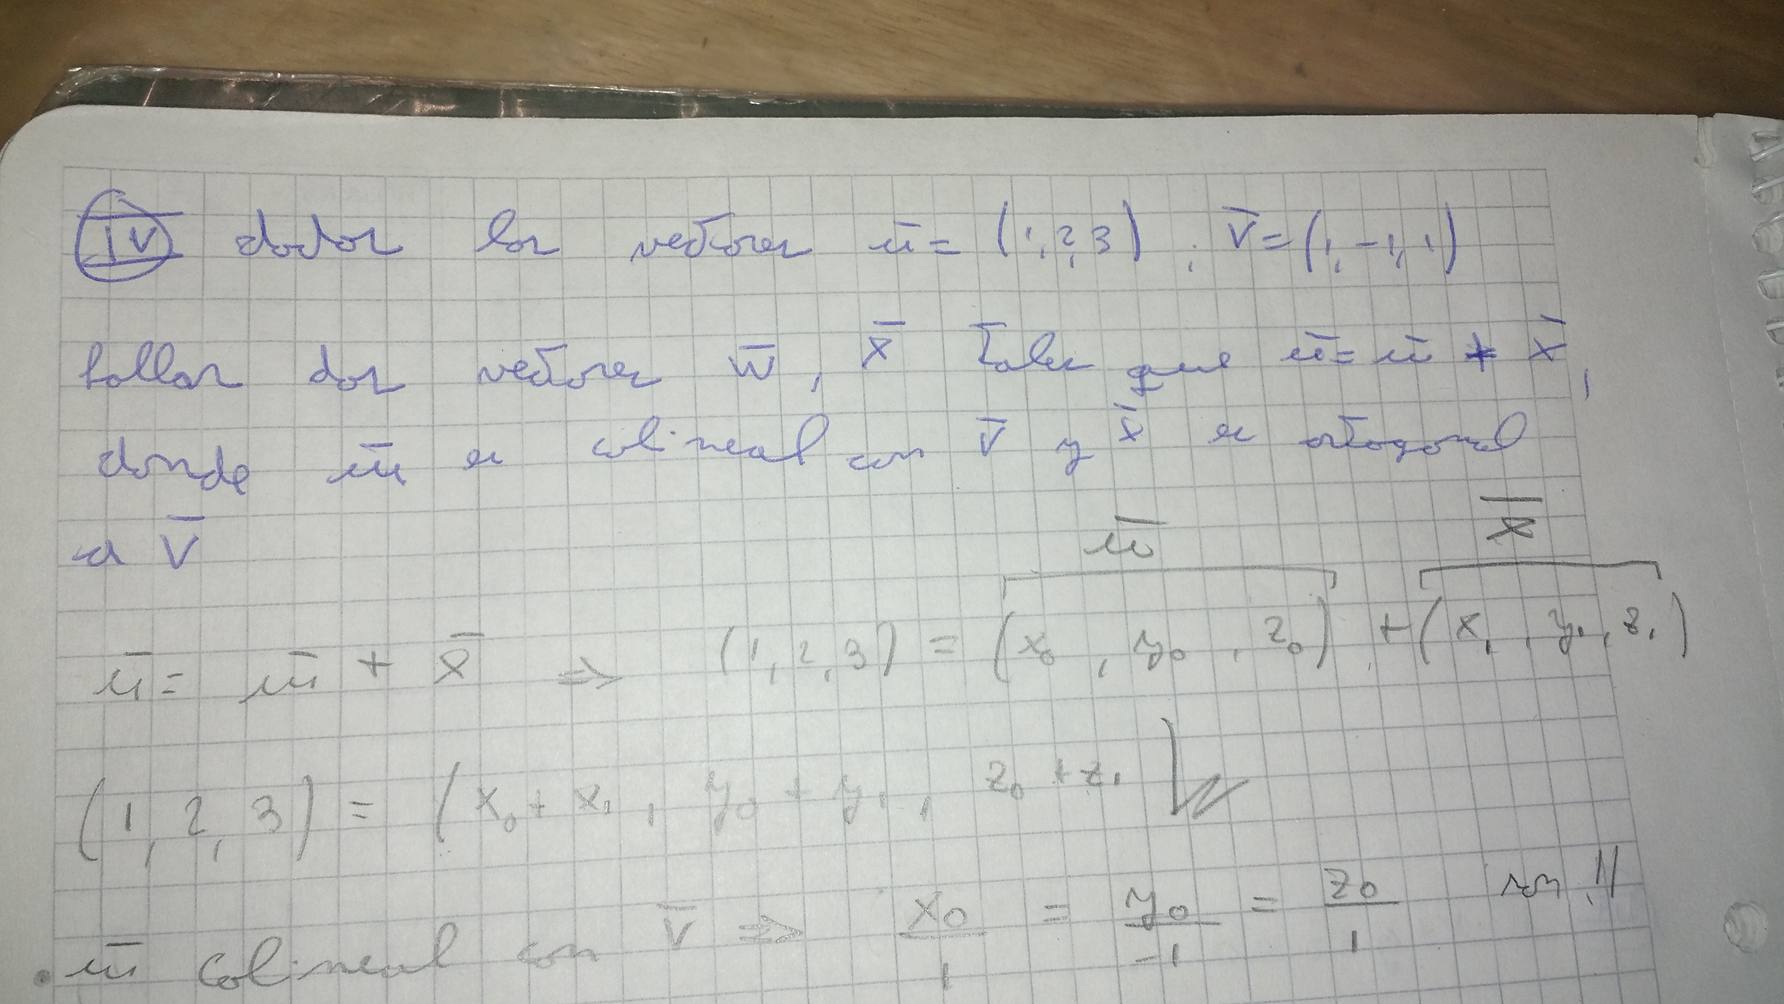 IV dados los vectores ū = (1, 2, 3) , v̄ = (1, -1, 1)
hallar dos vectores w̄ , x̄ tales que ū = w̄ + x̄ ,
donde w̄ es colineal con v̄ y x̄ es ortogonal
a v̄
w̄ x̄
ū = w̄ + x̄ ⇒ (1, 2, 3) = (x₀ , y₀ , z₀) + (x₁ , y₁ , z₁)
(1, 2, 3) = (x₀ + x₁ , y₀ + y₁ , z₀ + z₁)
• w̄ colineal con v̄ ⇒ x₀/1 = y₀/-1 = z₀/1 son //